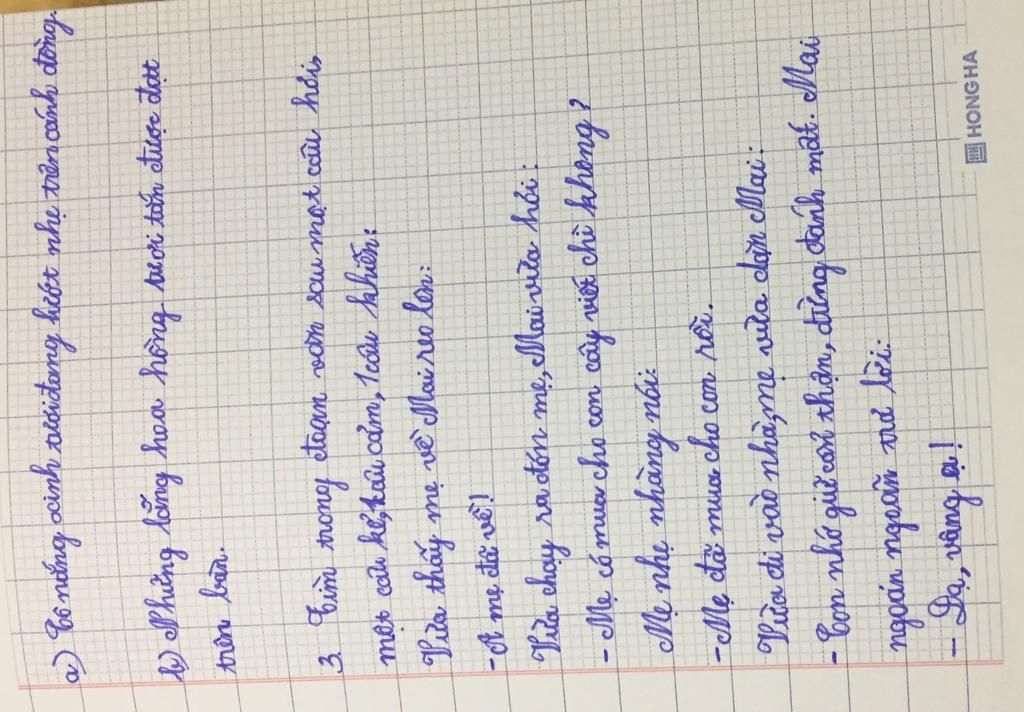 a) Cỏ nắng xinh tươi đang lướt nhẹ trên cánh đồng.
b) Những lẵng hoa hồng tươi tắn được đặt
trên bàn.
3. Tìm trong đoạn văn sau một câu hỏi,
một câu kể, 1 câu cảm, 1 câu khiến:
Vừa thấy mẹ về Mai reo lên:
- A mẹ đã về!
Vừa chạy ra đón mẹ, Mai vừa hỏi:
- Mẹ có mua cho con cây viết chì không?
Mẹ nhẹ nhàng nói:
- Mẹ đã mua cho con rồi.
Vừa đi vào nhà, mẹ vừa dặn Mai:
- Con nhớ giữ cẩn thận, đừng đánh mất. Mai
ngoan ngoãn trả lời:
- Dạ, vâng ạ!
HONG HA